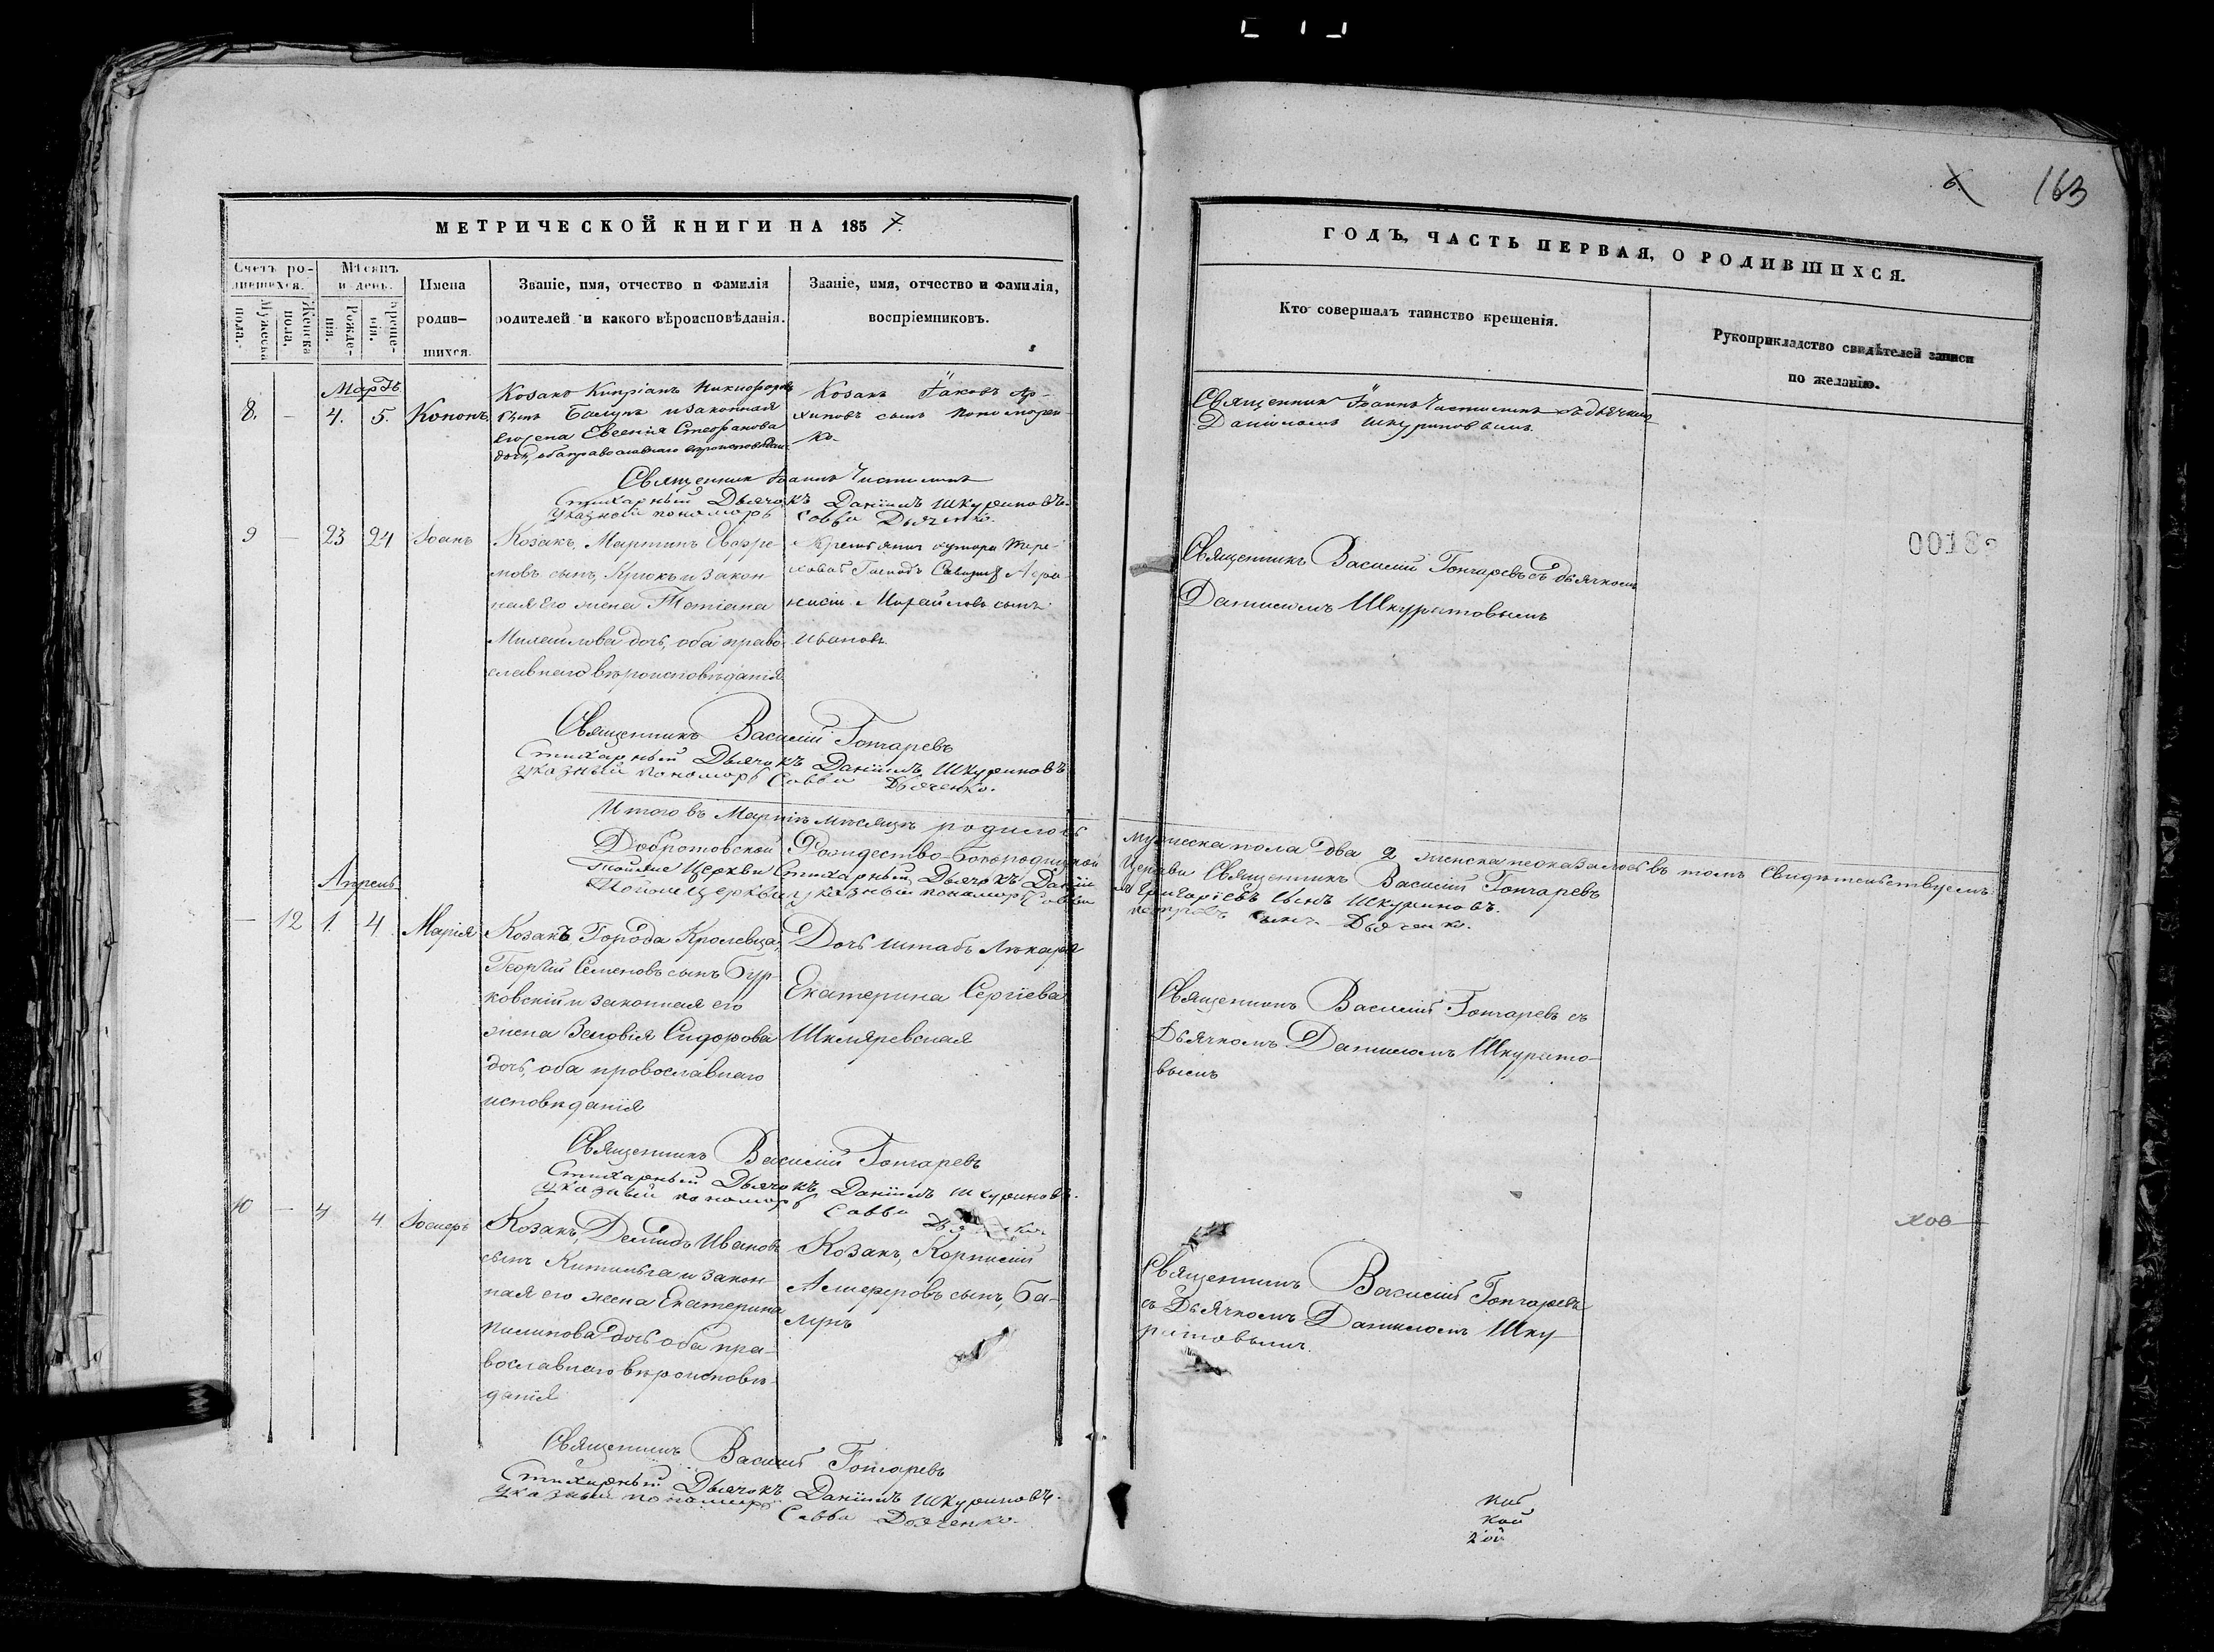 163
МЕТРИЧЕСКОЙ КНИГИ НА 1857.
ГОДЪ, ЧАСТЬ ПЕРВАЯ, О РОДИВШИХСЯ.
Счетъ родившихся.
Мужеска пола.
Женска пола.
Мѣсяцъ и день.
Рожденія.
Крещенія.
Имена родившихся.
Званіе, имя, отчество и фамилія
родителей и какого вѣроисповѣданія.
Званіе, имя, отчество и фамилія,
воспріемниковъ.
Кто совершалъ таинство крещенія.
Рукоприкладство свидѣтелей записи
по желанію.
Мартъ
8. — 4. 5. Кононъ
Козакъ Кипріанъ Никифоровъ
сынъ Балунъ и законная
его жена Евгенія Стефанова
дочь, оба православнаго вѣроисповѣданія
Козакъ Іаковъ Ар-
хиповъ сынъ
ко.
Священникъ Іоаннъ съ дьячкомъ
Даніиломъ
Священникъ Іоаннъ
Стихарный Дьячокъ Даніилъ
Указный пономарь Савва Дьяченко.
9 — 23 24 Іоанъ
Козакъ, Мартинъ Евфре-
мовъ сынъ, Крюкъ и закон-
ная его жена Татіана
Михайлова дочь, оба право-
славнаго вѣроисповѣданія
хутора
сынъ
Ивановъ.
Священникъ Василій Гончаревъ съ дьячкомъ
Даниломъ Шкуратовымъ
Священникъ Василій Гончаревъ
Стихарный Дьячокъ Даніилъ
Указный пономарь Савва Дьяченко.
Итого въ Мартѣ мѣсяцѣ родилось мужеска пола два 2 женска неоказалось въ томъ Свидѣтельствуемъ
Добротовской Рождество-Богородицкой Церкви Священникъ Василій Гончаревъ
Тойже Церкви Стихарный Дьячокъ Даніилъ Григоріевъ сынъ
Тойже церкви указный пономарь Савва Петровъ сынъ Дьяченко.
Апрель
— 12 1. 4 Марія
Козакъ Города Кролевца,
Георгій Семеновъ сынъ Бур-
ковскій и законная его
жена Зеновія Сидорова
дочь, оба провославнаго
исповѣданія
Дочь штабъ Лѣкаря
Екатерина Сергіева
Шкляревская
Священникъ Василій Гончаревъ съ
Дьячкомъ Даниломъ Шкурато-
вымъ
Священникъ Василій Гончаревъ
Стихарный Дьячокъ Даніилъ
Указный пономарь Савва
10 — 4 4 Іосифъ
Козакъ, Демидъ Ивановъ
сынъ и закон-
ная его жена Екатерина
дочь оба пра-
вославнаго вѣроисповѣ-
данія
Козакъ, Корнилій
сынъ, Ба-
лунъ
Священникъ Василій Гончаревъ
съ Дьячкомъ Даниломъ Шку
ратовымъ.
Священникъ Василій Гончаревъ
Стихарный Дьячокъ Даніилъ
Указный пономарь Савва Дьяченко.